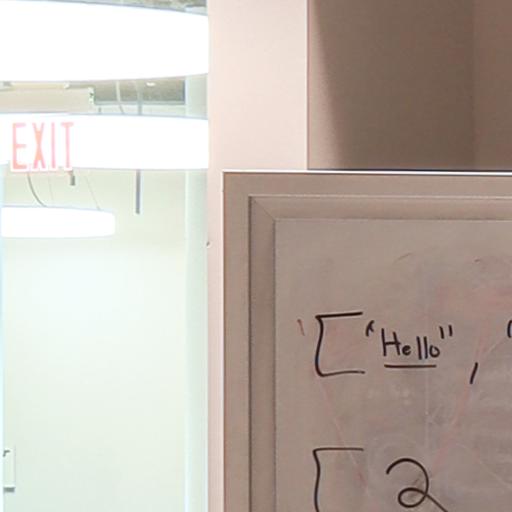 EXIT
["Hello", "
[2